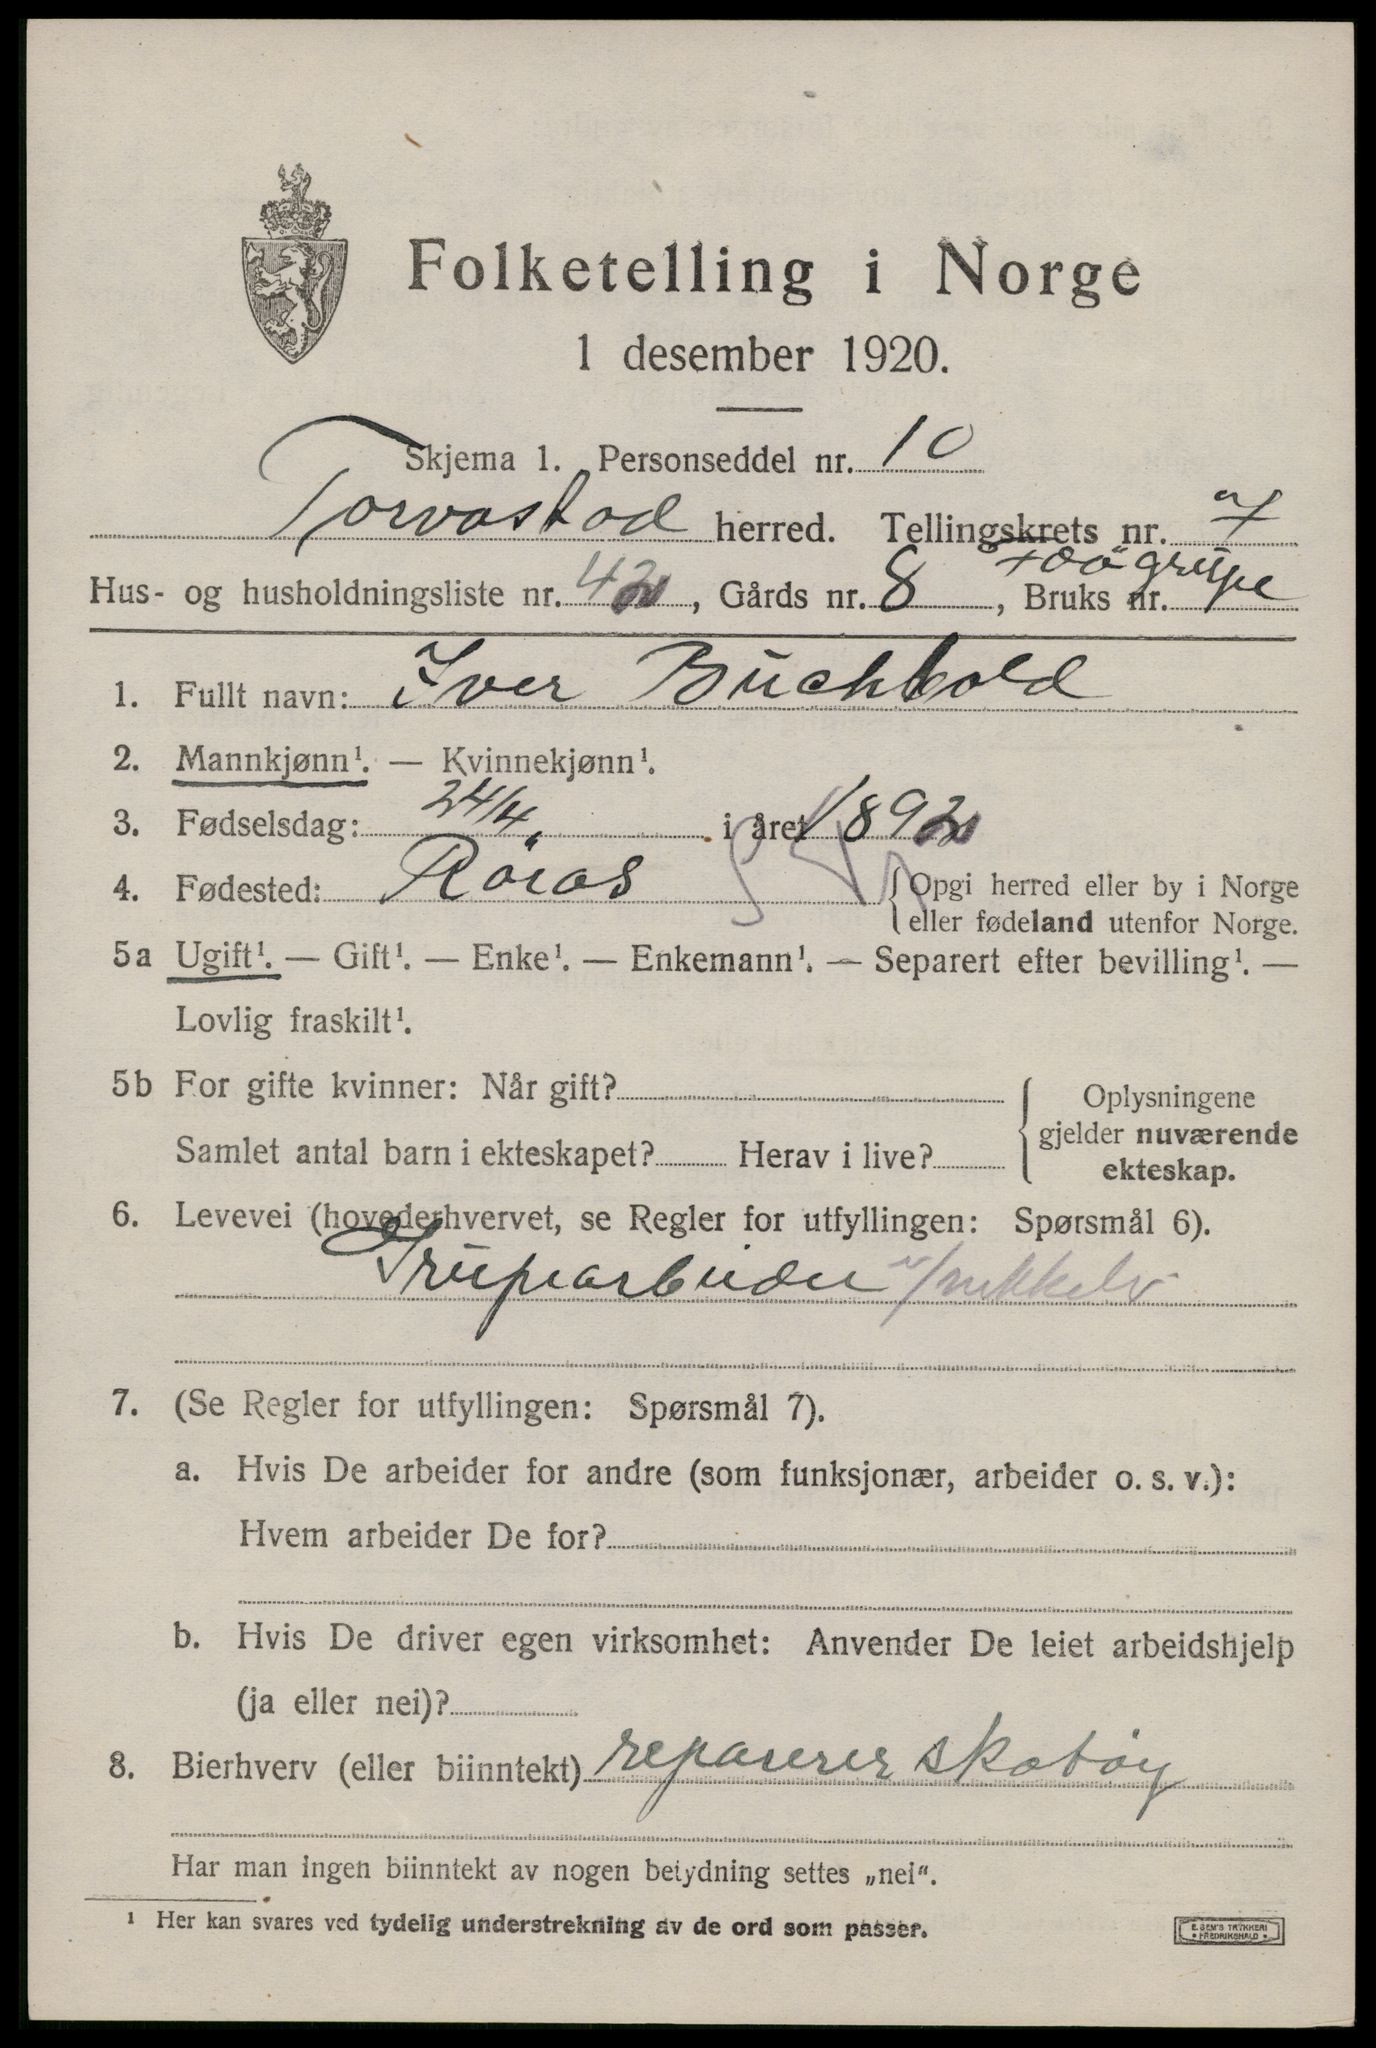 Folketelling i Norge
1 desember 1920.
Skjema 1. Personseddel nr. 10
Torvastad herred. Tellingskrets nr. 7
Hus- og husholdningsliste nr. 42, Gårds nr. 8, Bruks nr. Föö grupe
1. Fullt navn: Iver Buchhold
2. Mannkjønn¹. — Kvinnekjønn¹.
3. Fødselsdag: 24/4. i året 1892
4. Fødested: Röros {Opgi herred eller by i Norge
eller fødeland utenfor Norge.
5a Ugift¹. — Gift¹. — Enke¹. — Enkemann¹. — Separert efter bevilling¹. —
Lovlig fraskilt¹.
5b For gifte kvinner: Når gift?
Samlet antal barn i ekteskapet? Herav i live?
{ Oplysningene
gjelder nuværende
ekteskap.
6. Levevei (hovederhvervet, se Regler for utfyllingen: Spørsmål 6).
Gruparbeider
7. (Se Regler for utfyllingen: Spørsmål 7).
a. Hvis De arbeider for andre (som funksjonær, arbeider o. s. v.):
Hvem arbeider De for?
b. Hvis De driver egen virksomhet: Anvender De leiet arbeidshjelp
(ja eller nei)?
8. Bierhverv (eller biinntekt) reparerer skotöy
Har man ingen biinntekt av nogen betydning settes „nei“.
¹ Her kan svares ved tydelig understrekning av de ord som passer.
E. SEM'S TRYKKERI
• FREDRIKSHALD •